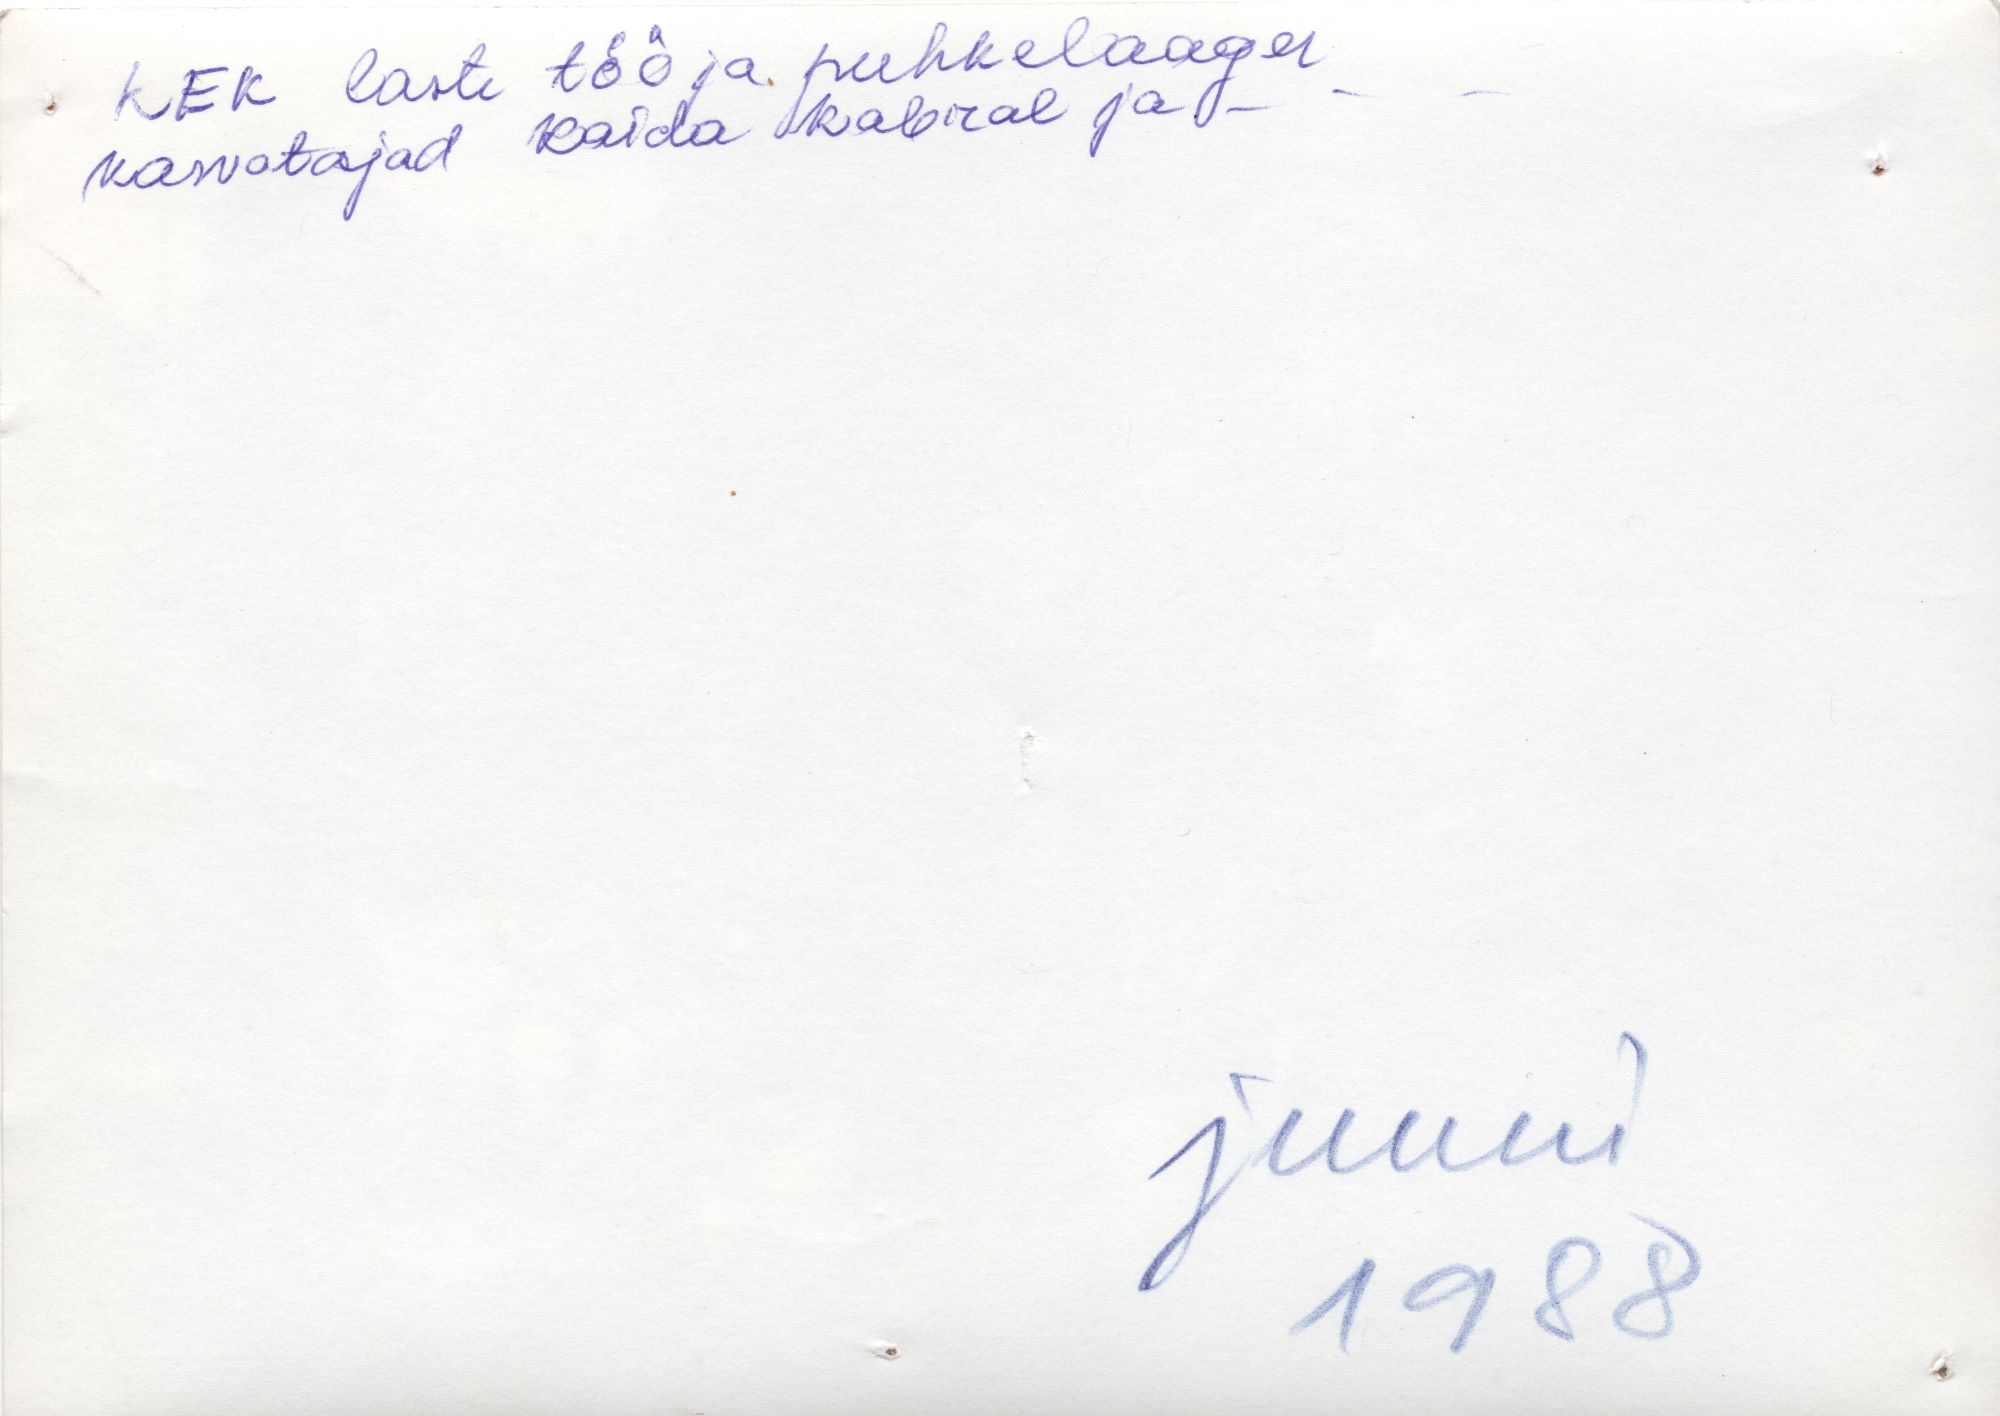 KEK laste töö ja puhkelaager
kasvatajad Kaida Kabral ja - - -
juuni
1988